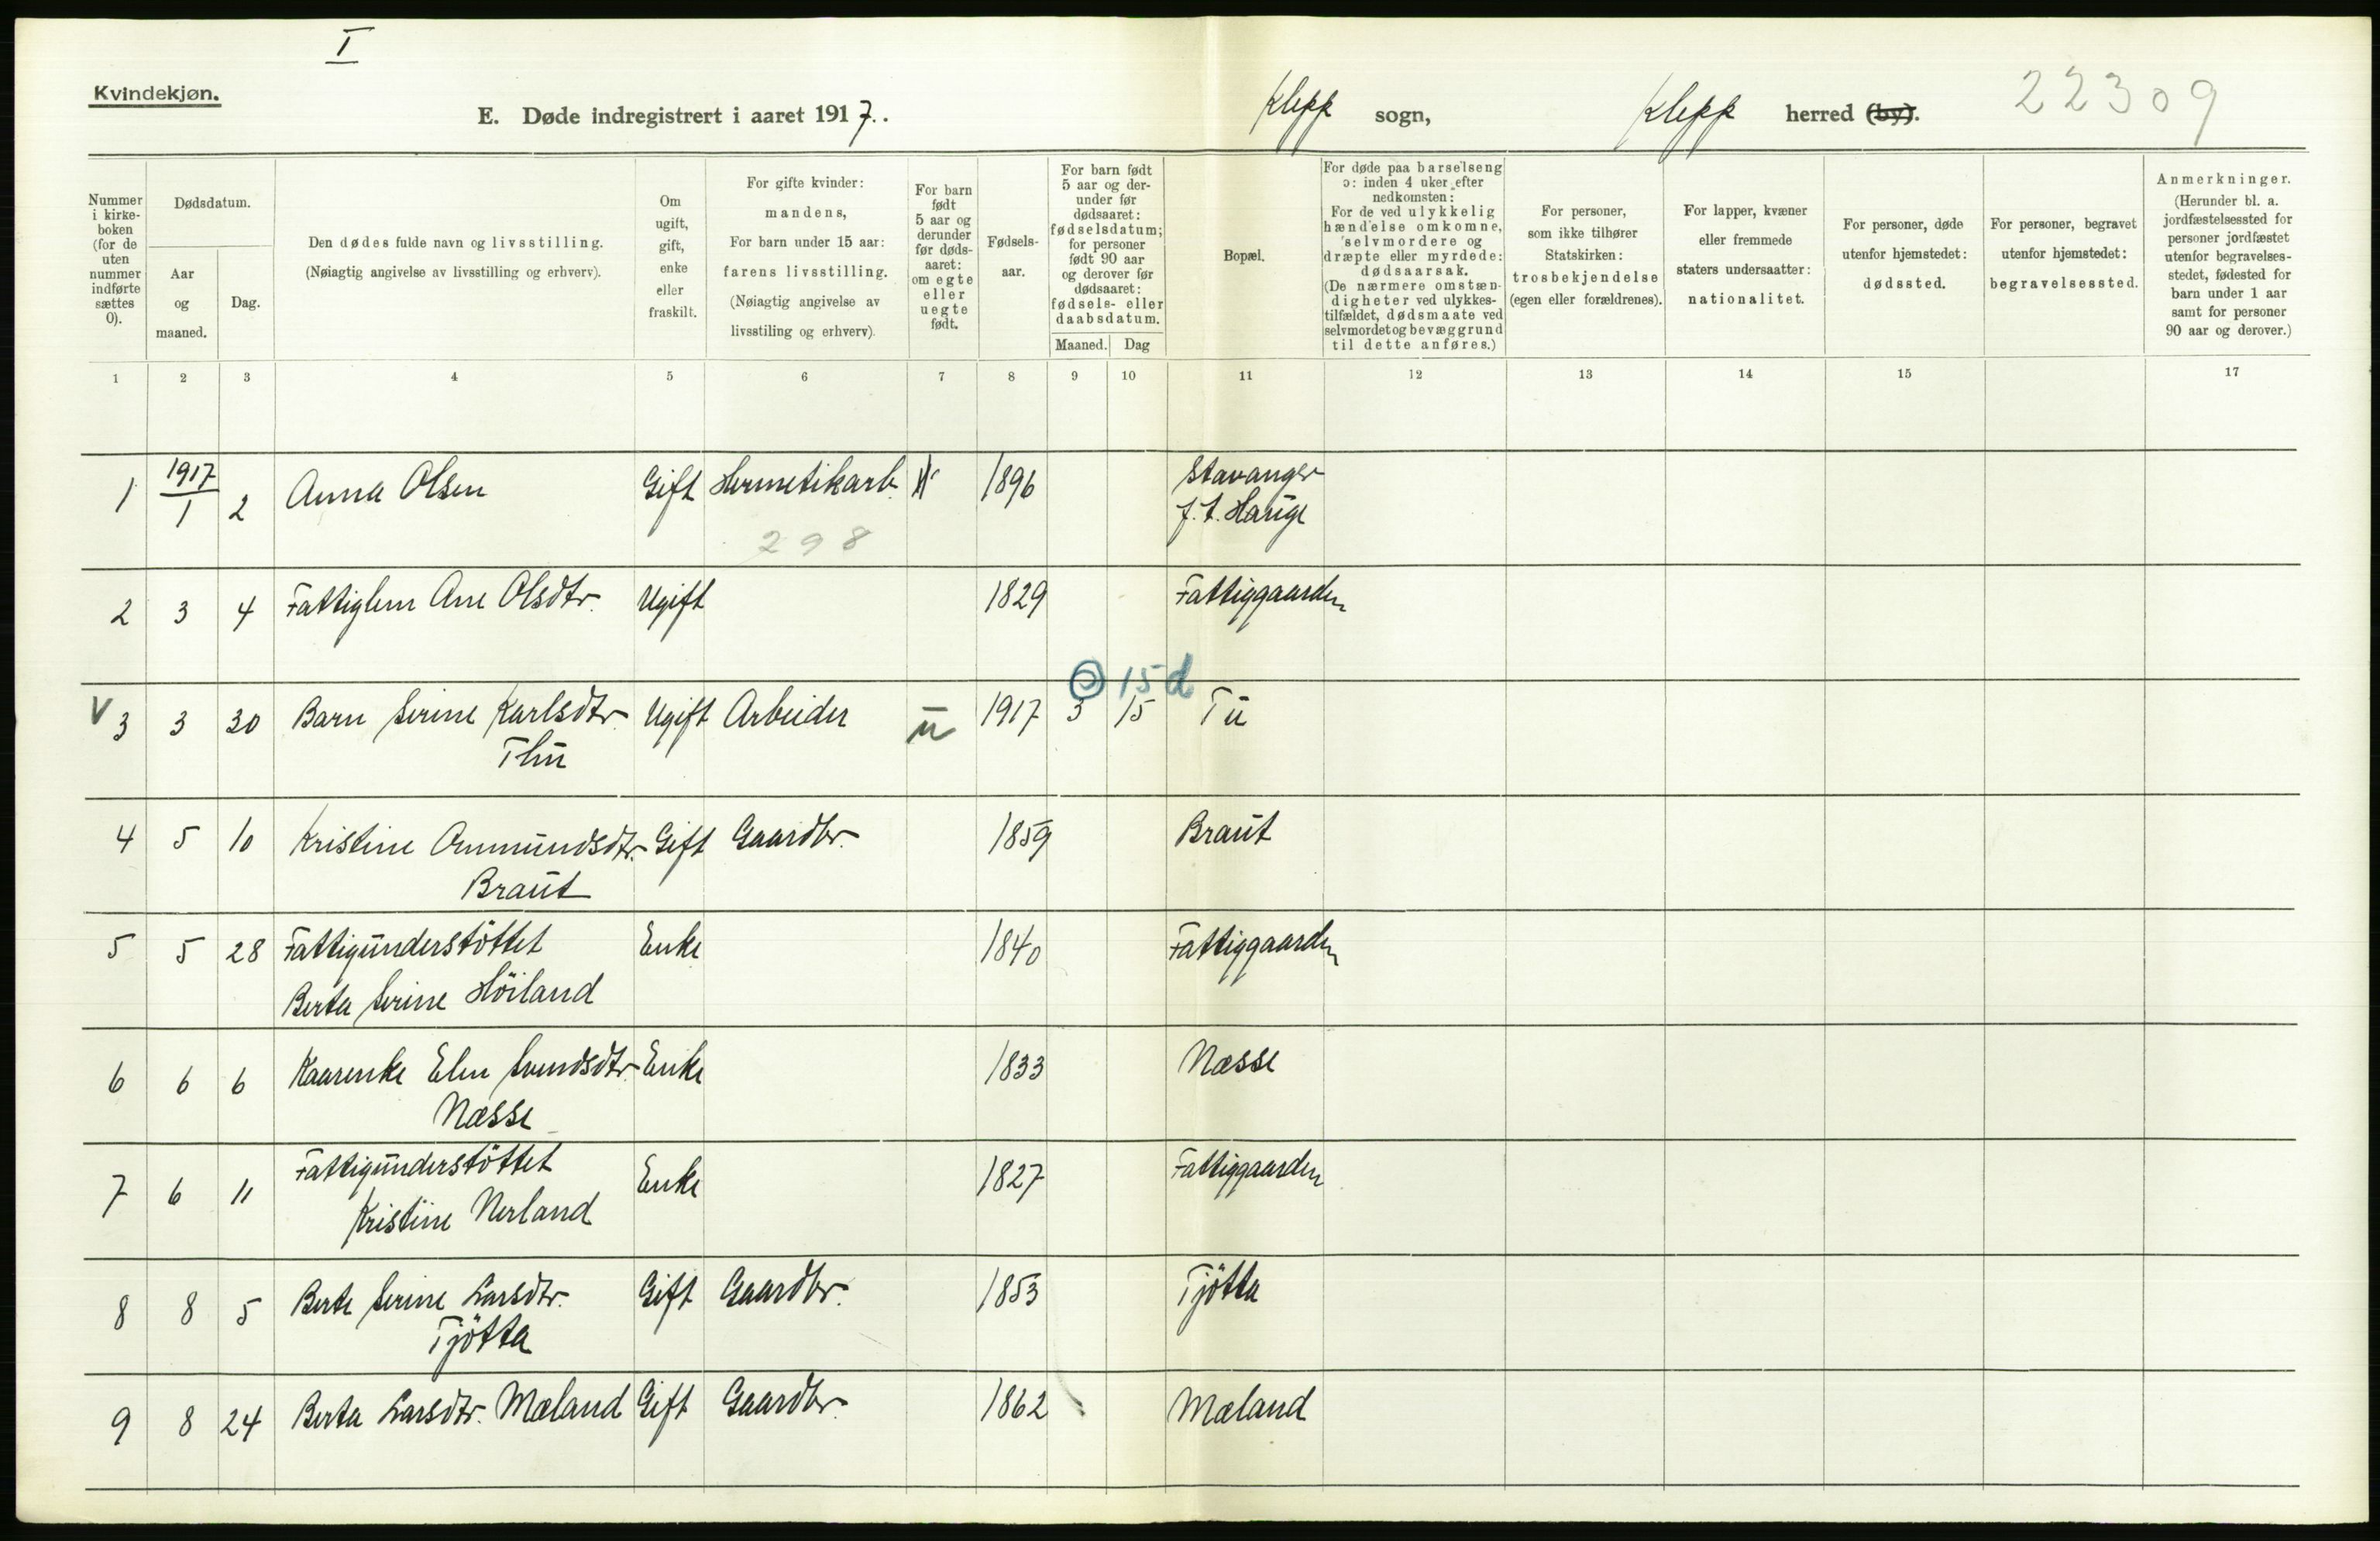 I
Kvindekjøn.
E. Døde indregistrert i aaret 1917.
Klepp sogn, Klepp herred (by). 22309
Nummer i kirkeboken (for de uten nummer indførte sættes 0).
Dødsdatum.
Aar og maaned.
Dag.
Den dødes fulde navn og livsstilling.
(Nøiagtig angivelse av livsstilling og erhverv).
Om ugift, gift, enke eller fraskilt.
For gifte kvinder: mandens,
For barn under 15 aar: farens livsstilling.
(Nøiagtig angivelse av livsstiling og erhverv).
For barn født 5 aar og derunder før dødsaaret: om egte eller uegte født.
Fødselsaar.
For barn født 5 aar og derunder før dødsaaret: fødselsdatum; for personer født 90 aar og derover før dødsaaret: fødsels- eller daabsdatum.
Maaned. Dag
Bopæl.
For døde paa barselseng ɔ: inden 4 uker efter nedkomsten:
For de ved ulykkelig hændelse omkomne, selvmordere og dræpte eller myrdede: dødsaarsak.
(De nærmere omstændigheter ved ulykkestilfældet, dødsmaate ved selvmordet og bevæggrund til dette anføres.)
For personer, som ikke tilhører Statskirken: trosbekjendelse (egen eller forældrenes).
For lapper, kvæner eller fremmede staters undersaatter: nationalitet.
For personer, døde utenfor hjemstedet: dødssted.
For personer, begravet utenfor hjemstedet: begravelsessted.
Anmerkninger.
(Herunder bl. a. jordfæstelsessted for personer jordfæstet utenfor begravelsesstedet, fødested for barn under 1 aar samt for personer 90 aar og derover.)
1 2 3 4 5 6 7 8 9 10 11 12 13 14 15 17
1 1917 1 2 Anna Olsen Gift Hermetikarb. 1896 Stavanger
f. t. Hauge
298
2 3 4 Fattiglem Ane Olsdtr. Ugift 1829 Fattiggaarden
0 15 d
V 3 3 30 Barn Serine Karlsdtr. Ugift Arbeider u 1917 3 15 Tu
Thu
4 5 10 Kristine Ommundsdtr. Gift Gaardbr. 1859 Braut
Braut
5 5 28 Fattigunderstöttet Enke 1840 Fattiggaarden
Berta Serine Höiland
6 6 6 Kaarenke Elen Svendsdtr. Enke 1833 Næsse
Næsse
7 6 11 Fattigunderstöttet Enke 1827 Fattiggaarden
Kristine Nerland
8 8 5 Berte Serine Larsdtr. Gift Gaardbr. 1853 Tjötta
Tjötta
9 8 24 Berta Larsdtr. Mæland Gift Gaardbr. 1862 Mæland